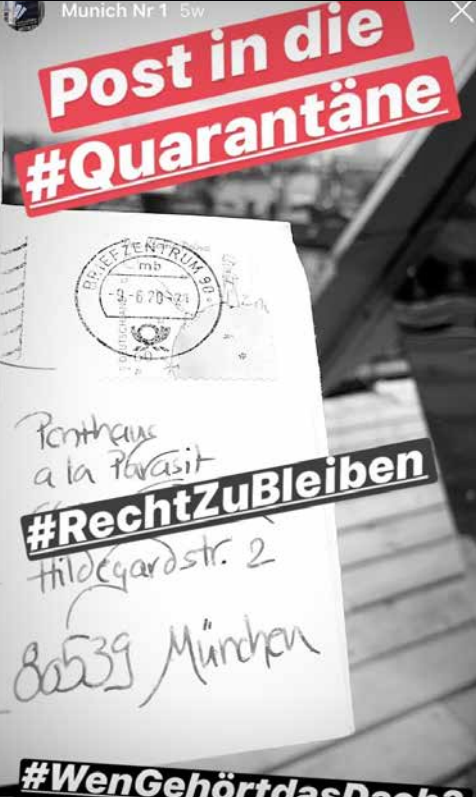 Munich Nr 1 5w
Post in die
#Quarantäne
BRIEFZENTRUM 90
mb
-9.-6.20-21
Penthaus
a la Parasit
#RechtZuBleiben
Hildegardstr. 2
80539 München
#WenGehörtdasDach?